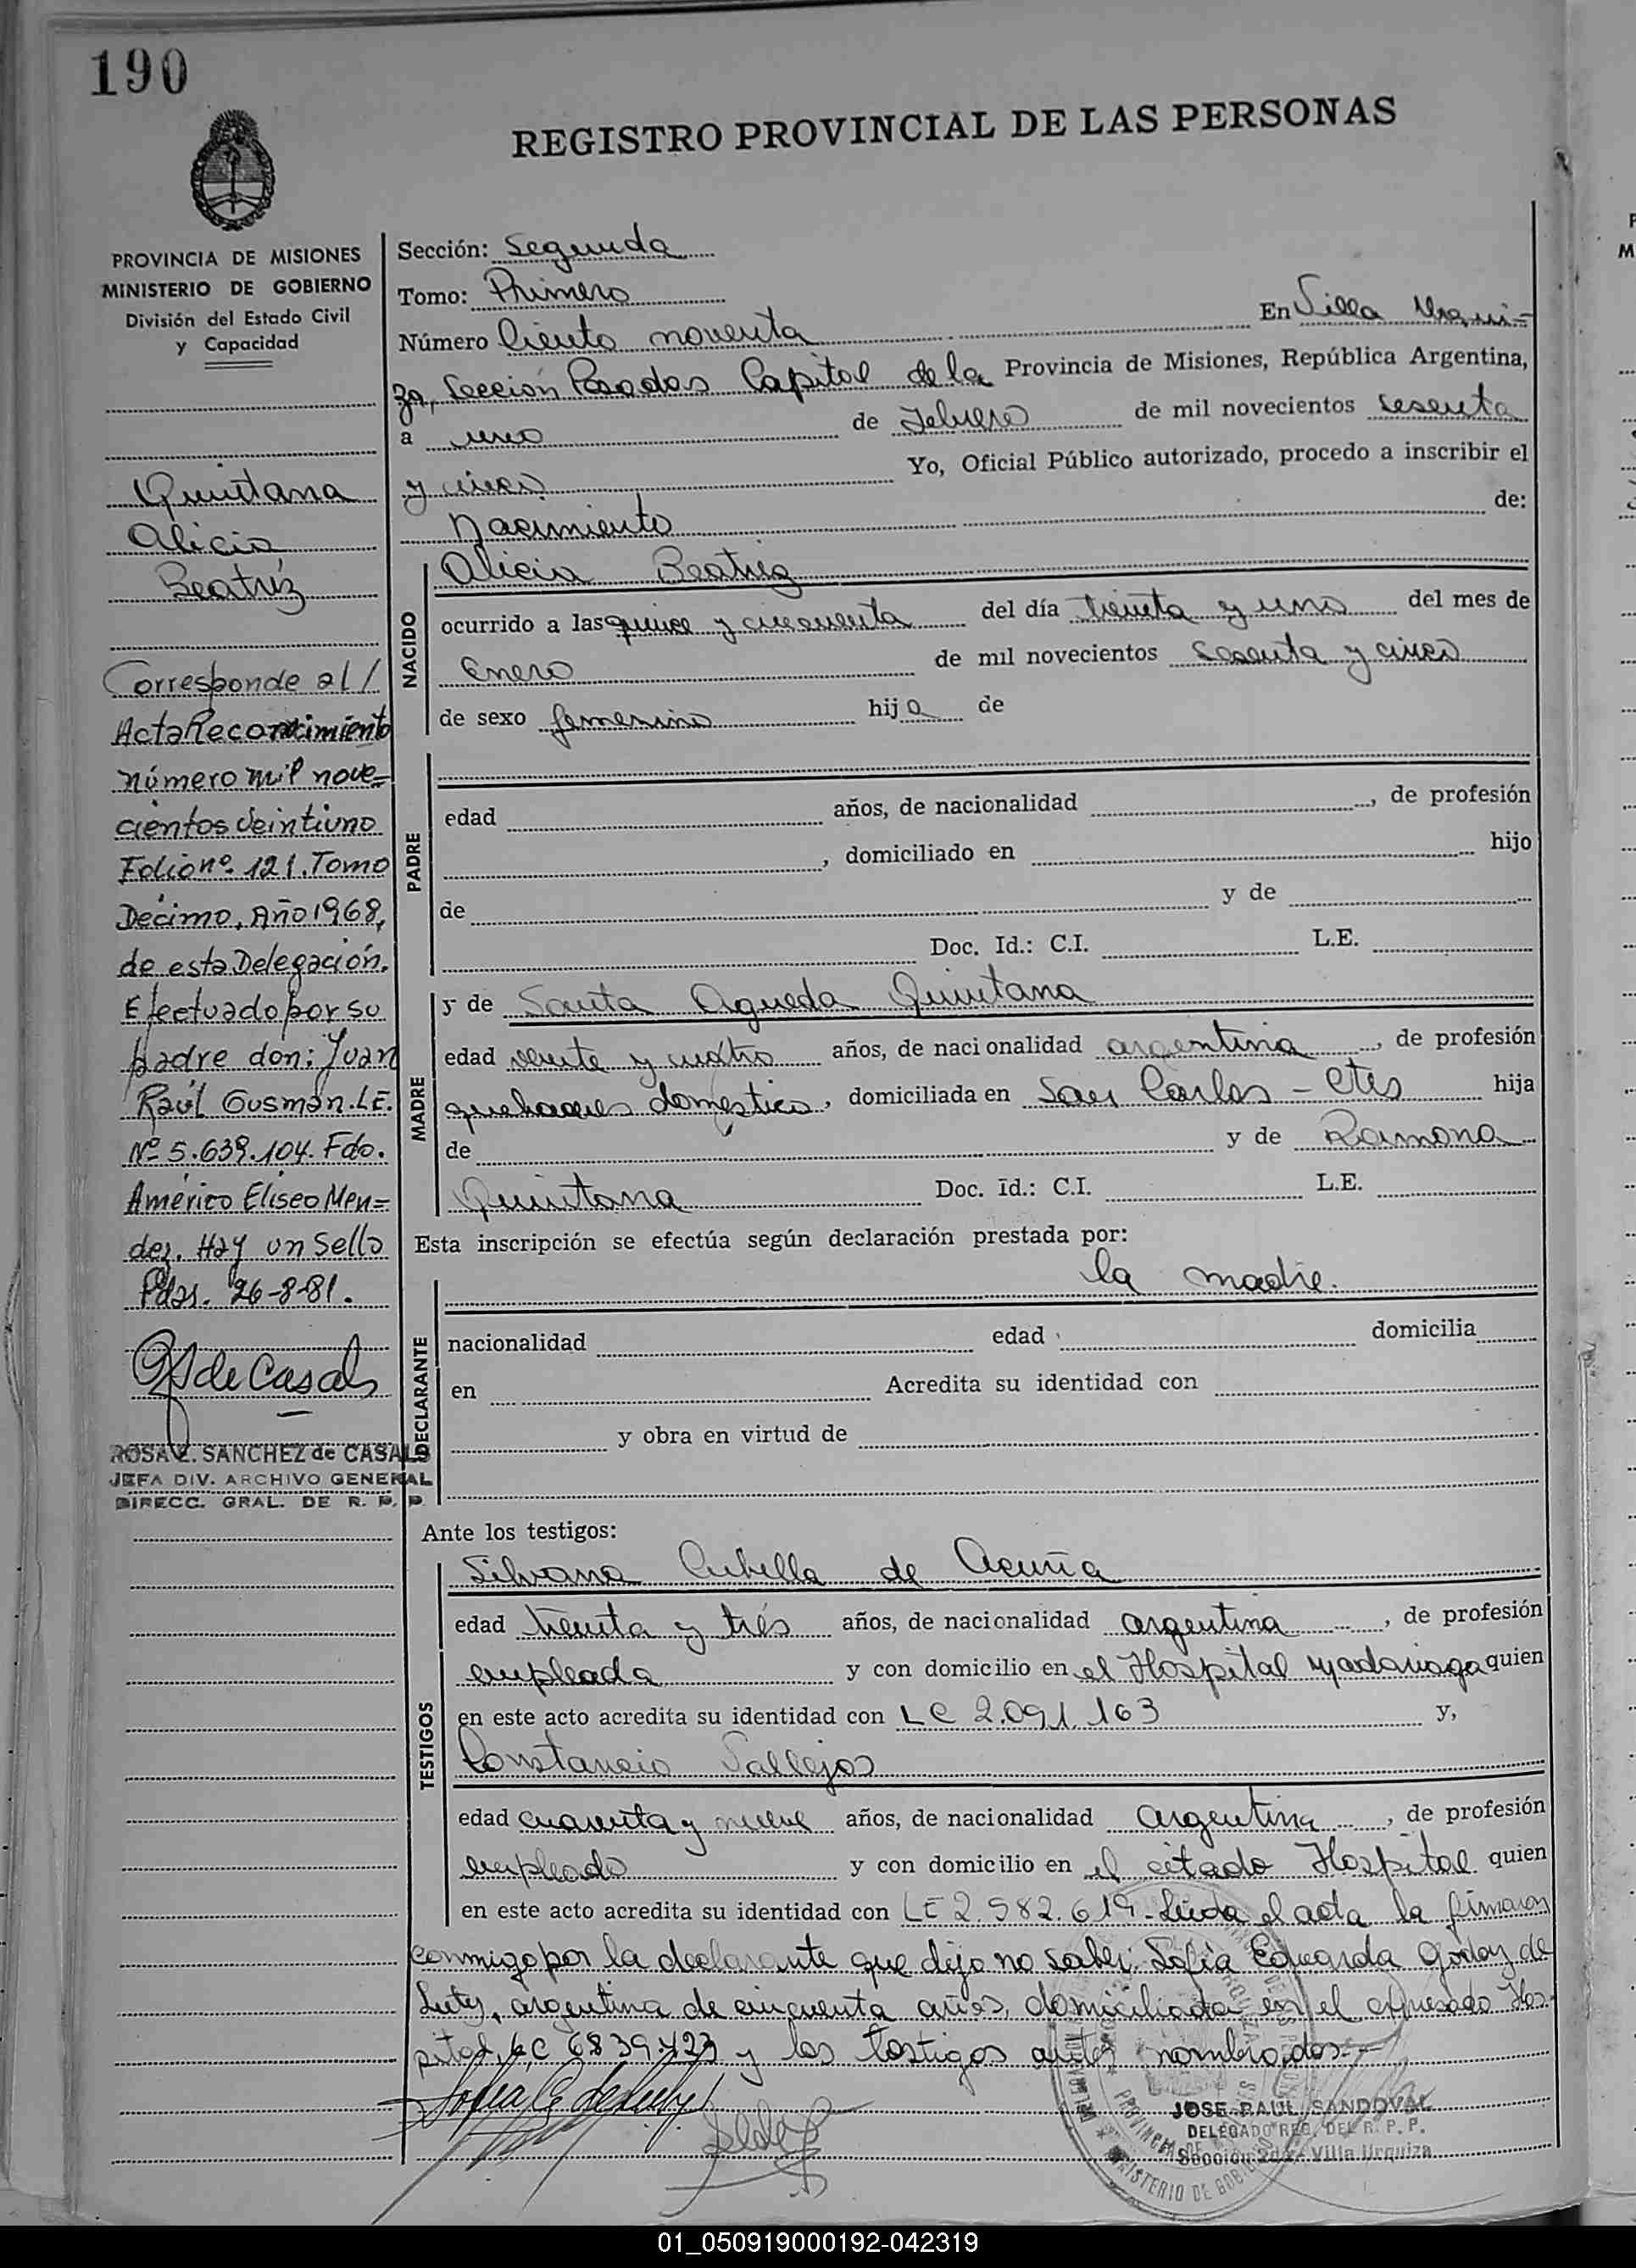 190
REGISTRO PROVINCIAL DE LAS PERSONAS
PROVINCIA DE MISIONES
MINISTERIO DE GOBIERNO
División del Estado Civil
y Capacidad
Quintana
Alicia
Beatríz
Corresponde al/
Acta Reconocimiento
número mil nove=
cientos veintiuno
Folio nº 121. Tomo
Décimo, Año 1968,
de esta Delegación.
Efectuado por su
padre don: Juan
Raúl Gusmán. LE.
Nº 5.639.104. Fdo.
Américo Eliseo Men=
dez. Hay un Sello
Pdas. 26-8-81.
ROSA E. SANCHEZ de CASALS
JEFA DIV. ARCHIVO GENERAL
DIRECC. GRAL. DE R. P. P.
Sección: Segunda
Tomo: Primero
Número Ciento noventa En Villa Urqui-
za, Sección Posadas Capital de la Provincia de Misiones, República Argentina,
a uno de Febrero de mil novecientos sesenta
y cinco Yo, Oficial Público autorizado, procedo a inscribir el
Nacimiento de:
NACIDO
Alicia Beatriz
ocurrido a las quince y cincuenta del día treinta y uno del mes de
Enero de mil novecientos sesenta y cinco
de sexo femenino hija de
PADRE
edad años, de nacionalidad , de profesión
, domiciliado en hijo
de y de
Doc. Id.: C.I. L.E.
MADRE
y de Santa Agueda Quintana
edad veinte y cuatro años, de nacionalidad argentina , de profesión
quehaceres domésticos, domiciliada en San Carlos - Ctes hija
de y de Ramona
Quintana Doc. Id.: C.I. L.E.
Esta inscripción se efectúa según declaración prestada por:
la madre.
DECLARANTE
nacionalidad edad domicilia
en Acredita su identidad con
y obra en virtud de
Ante los testigos:
TESTIGOS
Silvana Cubilla de Acuña
edad treinta y trés años, de nacionalidad argentina , de profesión
empleada y con domicilio en el Hospital Madariaga quien
en este acto acredita su identidad con LC 2.091.163 y,
Constancio Vallejos
edad cuarenta y nueve años, de nacionalidad argentina , de profesión
empleado y con domicilio en el citado Hospital quien
en este acto acredita su identidad con LE 2.582.619 - Leída el acta la firmaron
conmigo por la declarante que dijo no saber: Sofía Eduarda Godoy de
argentina de cincuenta años, domiciliada en el expresado Hos-
pital, LC 6839423 y los testigos antes nombrados.-
JOSE RAUL SANDOVAL
DELEGADO REG. DEL R. P. P.
Sección 2da. Villa Urquiza
01_050919000192-042319